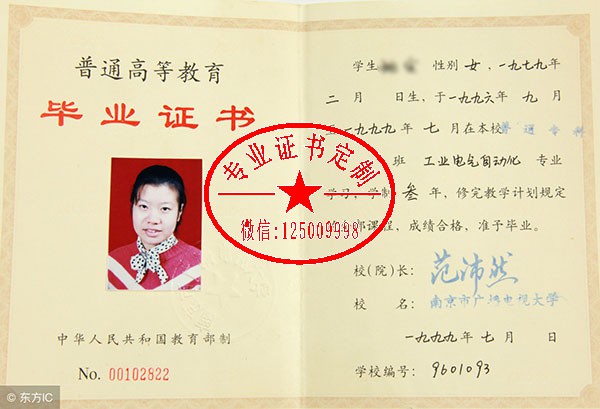 普通高等教育
毕业证书
中华人民共和国教育部制
No. 00102822
学生 性别 女 ,一九七九年
二月 日生,于一九九六年 九月
一九九九年 七月在本校 普通专科
班 工业电气自动化 专业
学习,学制 叁 年,修完教学计划规定
课程,成绩合格,准予毕业。
校(院)长: 范沛然
校 名: 南京市广播电视大学
一九九九年 七月 日
学校编号: 9601093
专业证书定制
微信:125009998
©东方IC